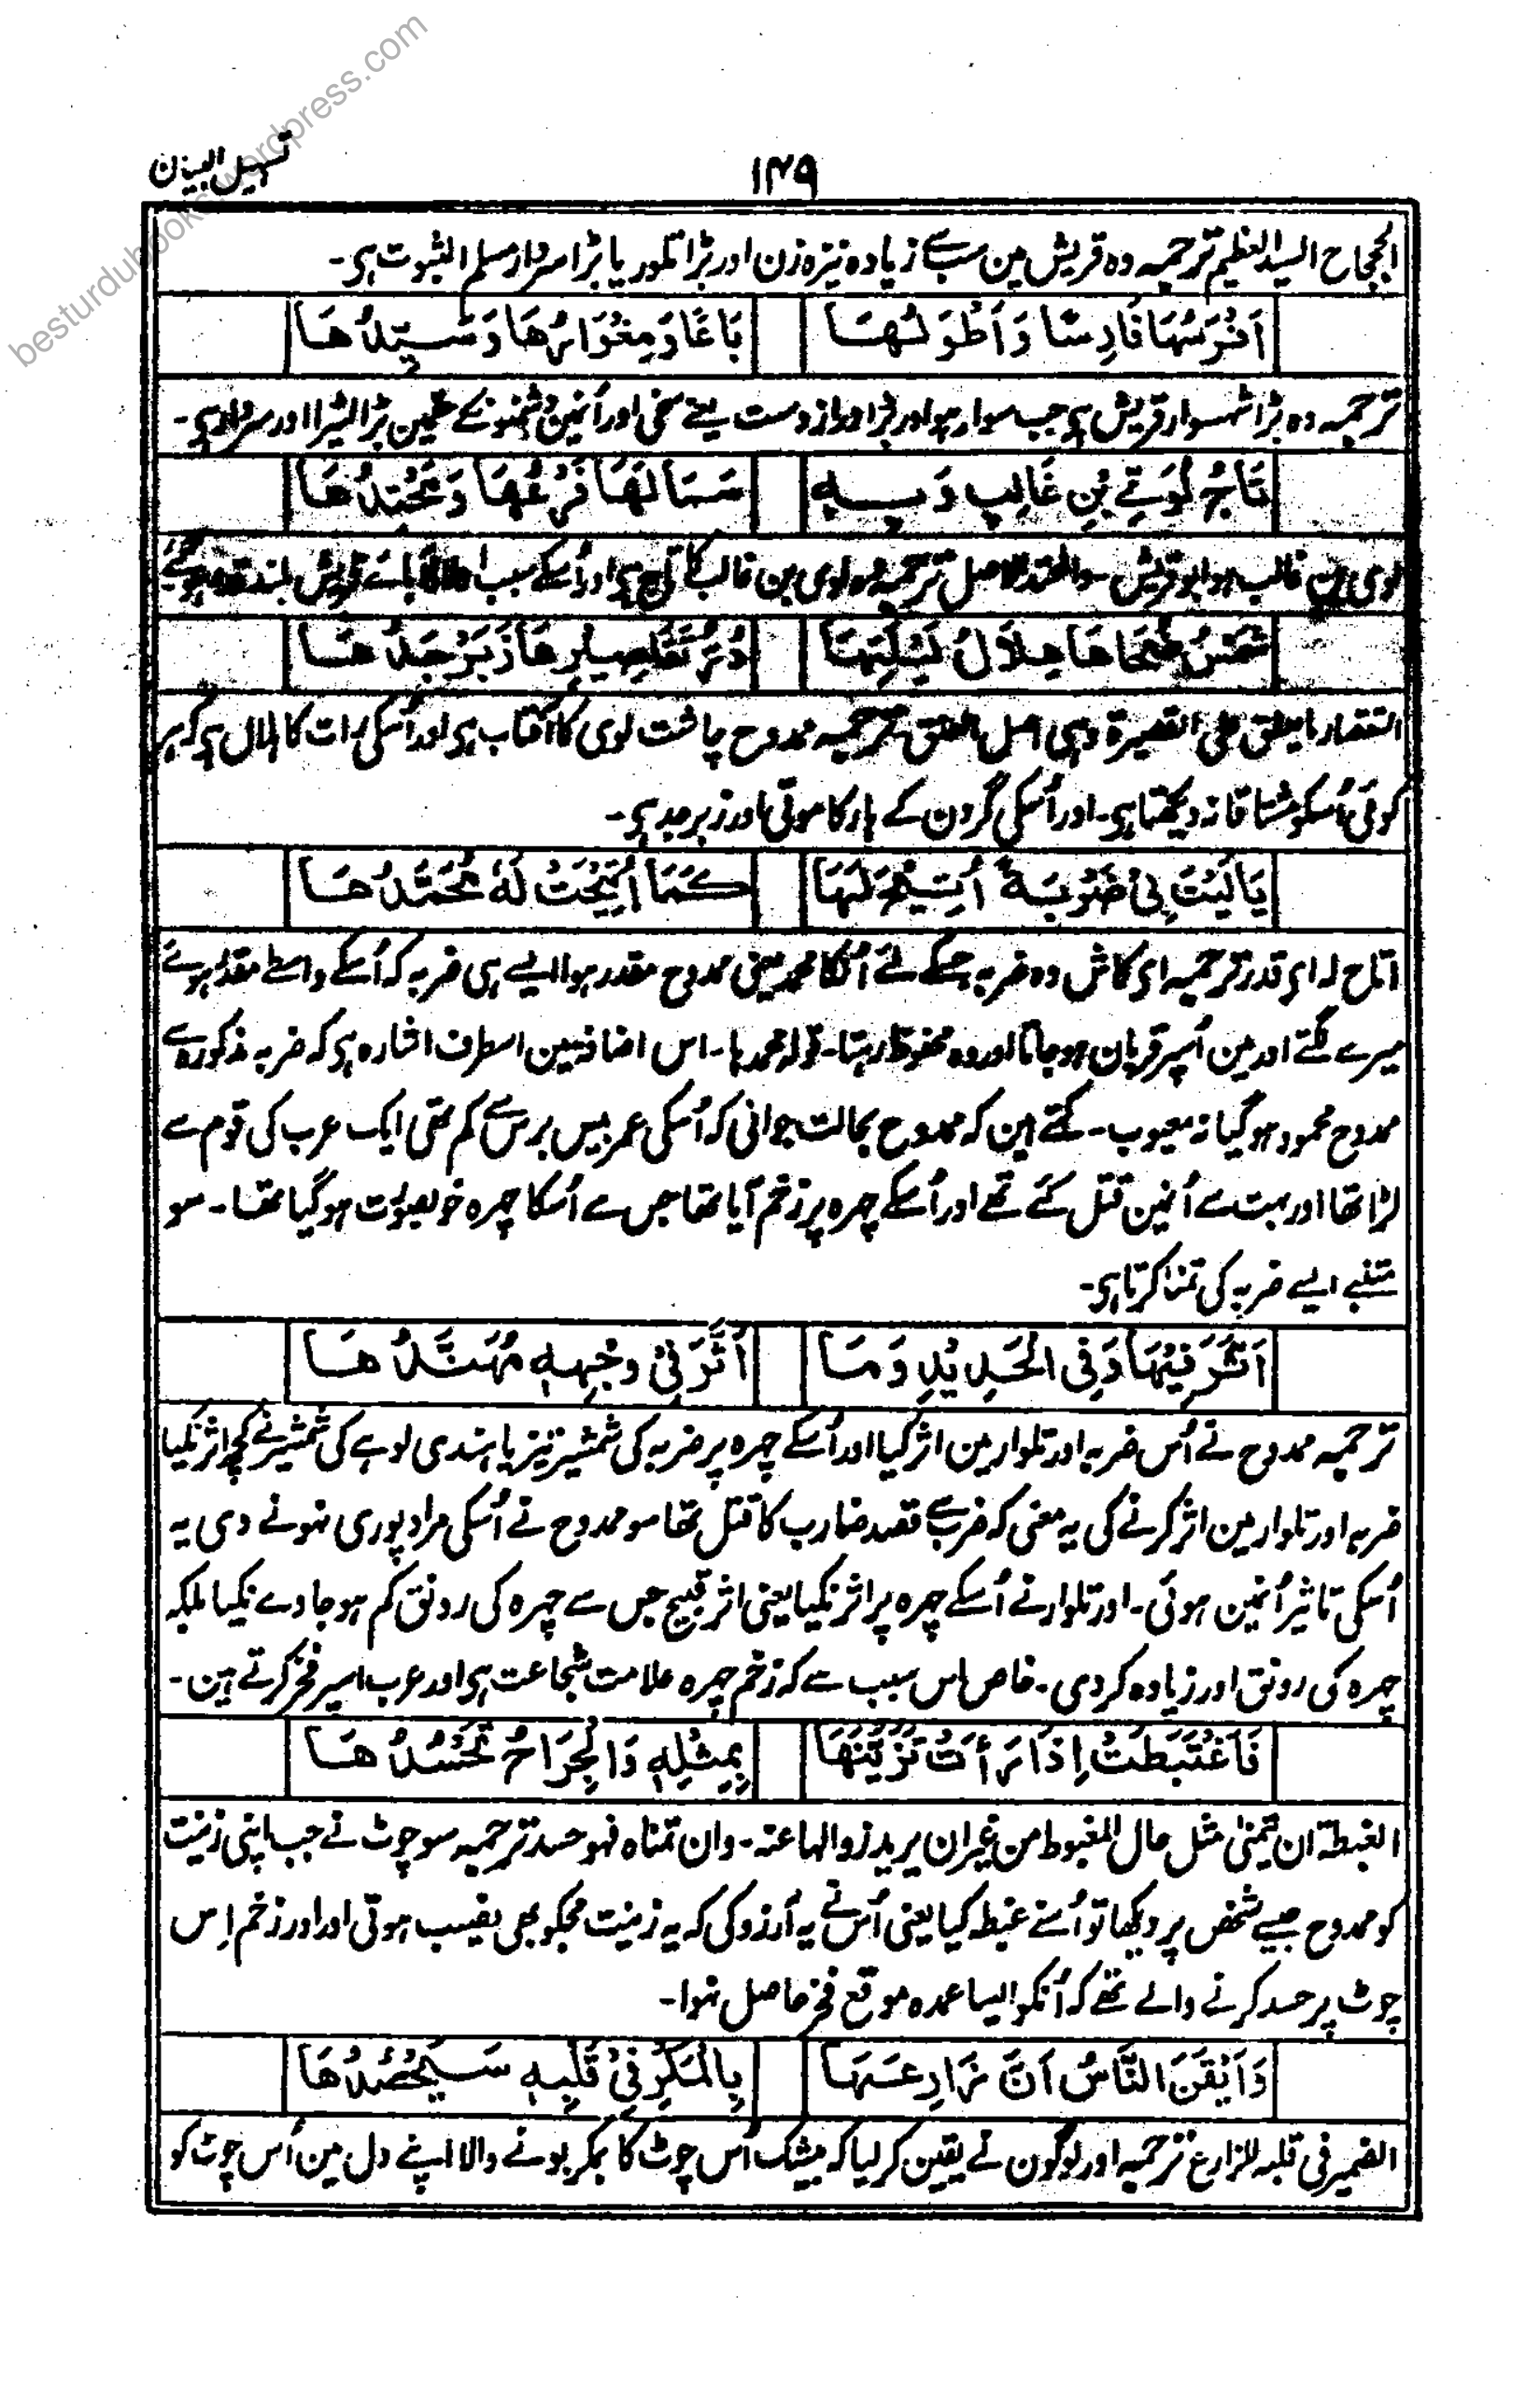 besturdubooks.wordpress.com
تسہیل البیان
۱۴۹
الجحجاح السید العظیم ترجمہ وہ قریش مین سبسے زیادہ نیزہ زن اور بڑا تلوریا بڑا سردار مسلم الثبوت ہی۔
اَفْرَسُهَا فَارِسًا وَاَطْوَلُهَا بَاعًا وَمِغْوَارُهَا وَسَيِّدُهَا
ترجمہ وہ بڑا شہسوار قریش ہی جب سوار ہو اور بڑا دراز دست یعنے سخی اور اُنمین دشمنونکے حق مین بڑا لٹیرا اور سردار ہی۔
تَاجُ لُوَيِّ بْنِ غَالِبٍ وَبِهٖ سَمَا لَهَا فَرْعُهَا وَمَحْتِدُهَا
لوی بن غالب ہو ابو قریش۔ والمحتد الاصل ترجمہ وہ لوی بن غالب کا تاج ہی اور اُسکے سبب اولاد آبائے قریش بلند قدر ہوگئے
شَمْسُ ضُحَاهَا هِلَالُ لَيْلَتِهَا دُرُّ تَقَاصِيرِهَا زَبَرْجَدُهَا
التقصار ما یعلق علی القصیرۃ وہی اصل العنق ترجمہ ممدوح چاشت لوی کا آفتاب ہی اور اُسکی رات کا ہلال ہی کہ ہر
کوئی اُسکو مشتاقانہ دیکھتا ہی۔ اور اُسکی گردن کے ہار کا موتی اور زبرجد ہی۔
يَا لَيْتَ بِىْ ضَرْبَةً اُتِيْحَ لَهَا كَمَا اُتِيْحَتْ لَهٗ مُحَمَّدُهَا
اتاح لہ ای قدر ترجمہ ای کاش وہ ضربہ جسکے لئے اُسکا محمد یعنی ممدوح مقدر ہوا ایسے ہی ضربہ کہ اُسکے واسطے مقدر ہوئے
میرے لگتے اور مین اُسپر قربان ہوجاتا اور وہ محفوظ رہتا۔ قولہ محمدہا۔ اس اضافہ مین اسطرف اشارہ ہی کہ ضربہ مذکورہ سے
ممدوح محمود ہوگیا نہ معیوب۔ کہتے ہین کہ ممدوح بحالت جوانی کہ اُسکی عمر بیس برس سے کم تھی ایک عرب کی قوم سے
لڑا تھا اور بہت سے اُنمین قتل کئے تھے اور اُسکے چہرہ پر زخم آیا تھا جس سے اُسکا چہرہ خوبصورت ہوگیا تھا۔ سو
متنبے ایسے ضربہ کی تمنا کرتا ہی۔
اَثَّرَ فِيْهَا وَفِى الْحَدِيْدِ وَمَا اَثَّرَ فِىْ وَجْهِهٖ مُهَنَّدُهَا
ترجمہ ممدوح نے اُس ضربہ اور تلوار مین اثر کیا اور اُسکے چہرہ پر ضربہ کی شمشیر تیز یا ہندی لوہے کی شمشیر نے کچھ اثر نکیا
ضربہ اور تلوار مین اثر کرنے کی یہ معنی کہ ضرب سے قصد ضارب کا قتل تھا سو ممدوح نے اُسکی مراد پوری نہونے دی یہ
اُسکی تاثیر اُنمین ہوئی۔ اور تلوار نے اُسکے چہرہ پر اثر نکیا یعنی اثر قبیح جس سے چہرہ کی رونق کم ہوجاوے نکیا بلکہ
چہرہ کی رونق اور زیادہ کردی۔ خاص اس سبب سے کہ زخم چہرہ علامت شجاعت ہی اور عرب اسپر فخر کرتے ہین۔
فَاغْتَبَطَتْ اِذَا رَأَتْ تَزَيُّنَهَا بِمِثْلِهٖ وَالْجِرَاحُ تَحْسُدُهَا
الغبطۃ ان یتمنیٰ مثل حال المغبوط من غیر ان یرید زوالہا عنہ۔ وان تمناہ فہو حسد ترجمہ سو چوٹ نے جب اپنی زینت
کو ممدوح جیسے شخص پر دیکھا تو اُسنے غبطہ کیا یعنی اُس نے یہ آرزو کی کہ یہ زینت مجکو بھی نصیب ہوتی اور اور زخم اِس
چوٹ پر حسد کرنے والے تھے کہ اُنکو ایسا عمدہ موقع فخر حاصل نہوا۔
وَاَيْقَنَ النَّاسُ اَنَّ زَارِعَهَا بِالْمَكْرِ فِىْ قَلْبِهٖ سَيَحْصُدُهَا
الضمیر فی قلبہ للزارع ترجمہ اور لوگون نے یقین کرلیا کہ بیشک اُس چوٹ کا بمکر بونے والا اپنے دل مین اُس چوٹ کو